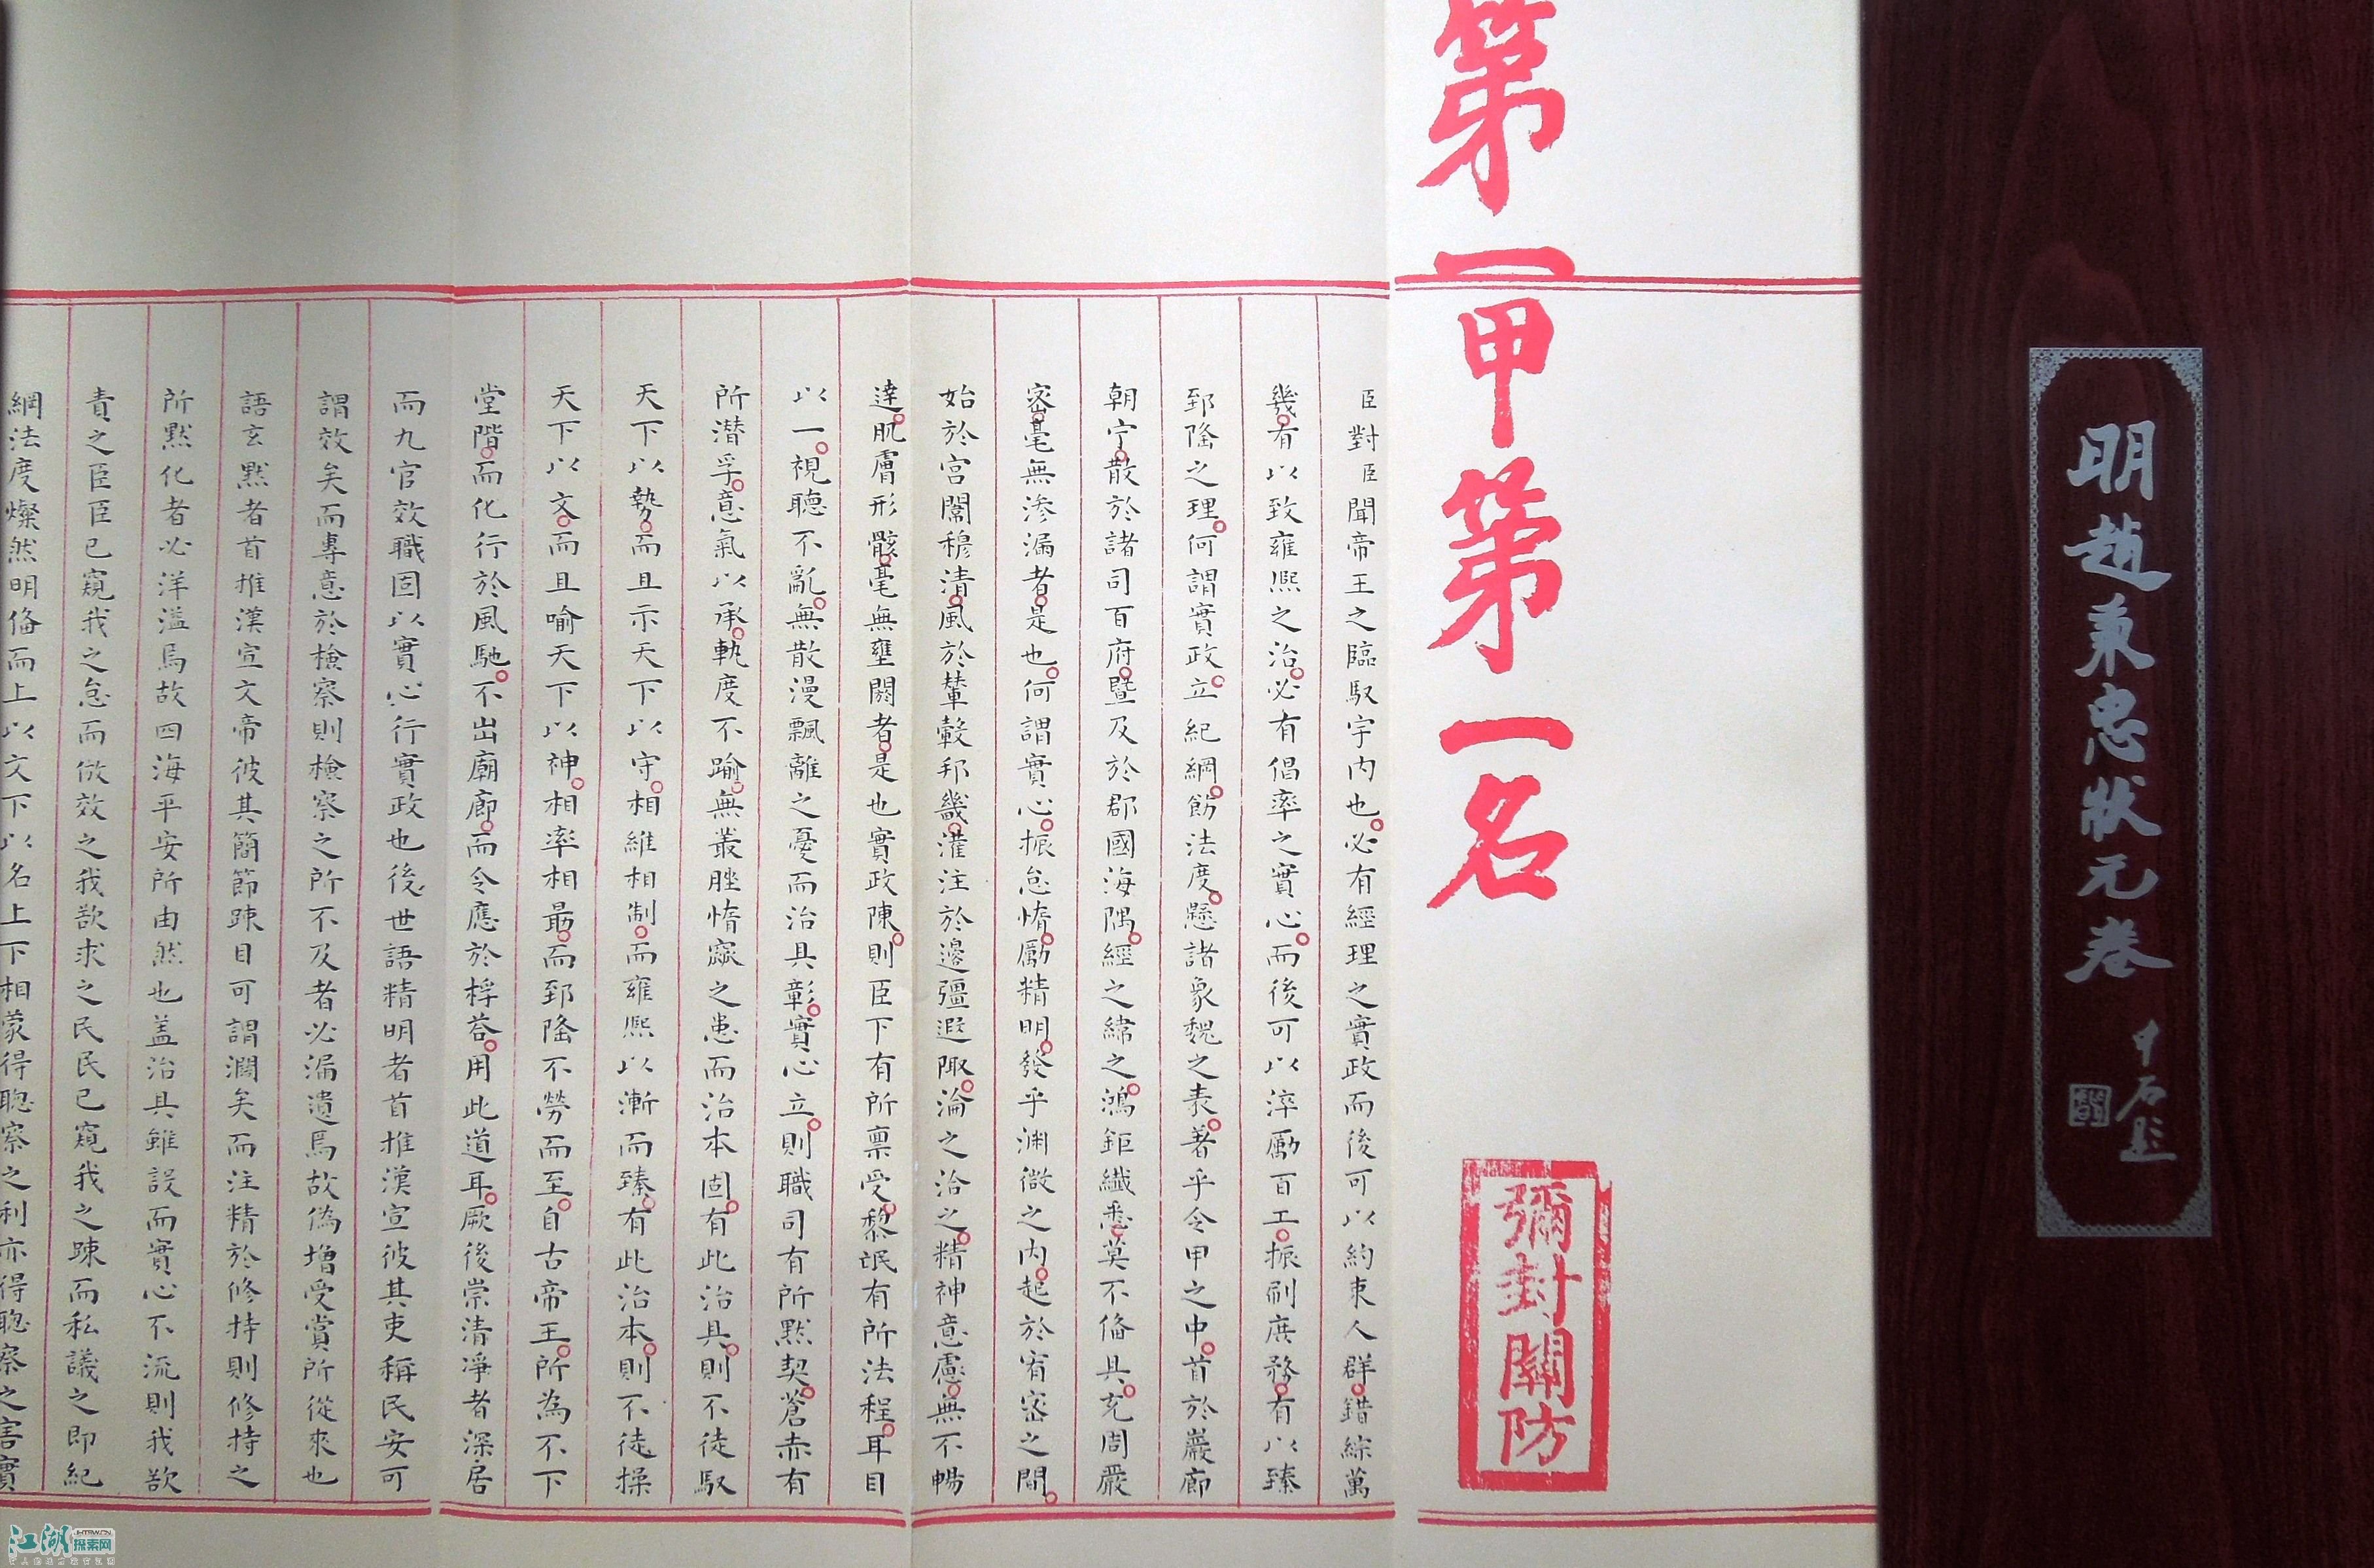 明趙秉忠狀元卷
中石题
第一甲第一名
彌封關防
臣對臣聞帝王之臨馭宇內也必有經理之實政而後可以約束人群錯綜萬
幾有以致雍熙之治必有倡率之實心而後可以淬勵百工振刷庶務有以臻
郅隆之理何謂實政立紀綱飭法度懸諸象魏之表著乎令甲之中首於巖廊
朝宁散於諸司百府暨及於郡國海隅經之緯之鴻鉅纖悉莫不俻具充周嚴
密毫無滲漏者是也何謂實心振怠惰勵精明發乎淵微之內起於宥密之間
始於宮闈穆清風於輦轂邦畿灌注於邊疆遐陬淪之洽之精神意慮無不暢
達肌膚形骸毫無壅閼者是也實政陳則臣下有所禀受黎氓有所法程耳目
以一視聽不亂無散漫飄離之憂而治具彰實心立則職司有所默契蒼赤有
所潛孚意氣以承軌度不踰無叢脞惰窳之患而治本固有此治具則不徒馭
天下以勢而且示天下以守相維相制而雍熙以漸而臻有此治本則不徒操
天下以文而且喻天下以神相率相最而郅隆不勞而至自古帝王所為不下
堂階而化行於風馳不出廟廊而令應於桴荅用此道耳厥後崇清淨者深居
而九官效職固以實心行實政也後世語精明者首推漢宣彼其吏稱民安可
謂效矣而專意於檢察則檢察之所不及者必漏遺焉故偽增受賞所從來也
語玄默者首推漢宣文帝彼其簡節踈目可謂濶矣而注精於修持則修持之
所默化者必洋溢焉故四海平安所由然也盖治具雖設而實心不流則我欲
責之臣臣已窺我之怠而倣效之我欲求之民民已窺我之踈而私議之即紀
綱法度燦然明俻而上以文下以名上下相蒙得聰察之利亦得聰察之害實
江湖探索网